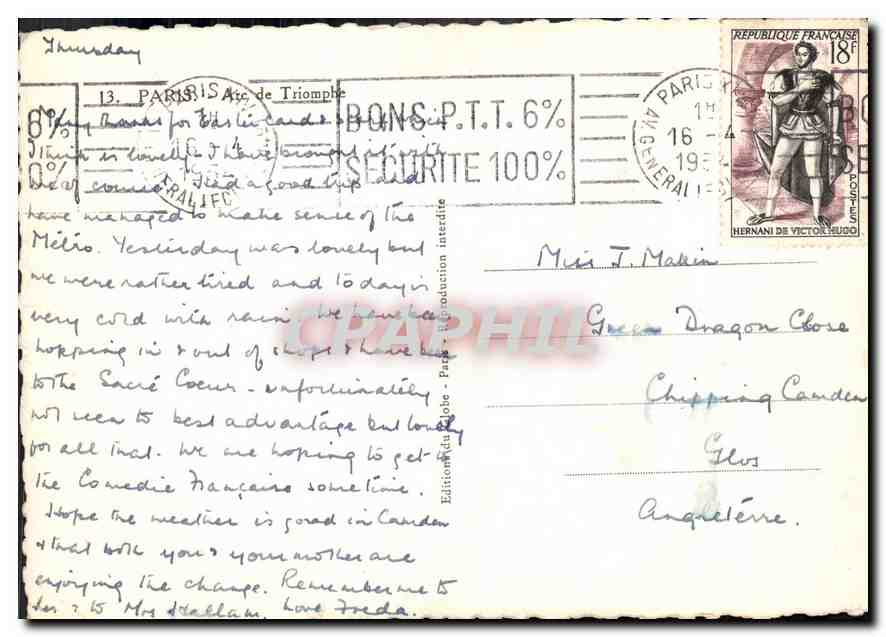 Thursday
13. PARIS. Arc de Triomphe
Many thanks for Easter card &
I think is lovely. I have brought it with
me of course. Had a good trip and
have managed to make sense of the
Métro. Yesterday was lovely but
we were rather tired and today is
very cold with rain. We have been
hopping in & out of shops & have been
to the Sacré Coeur - unfortunately
not seen to best advantage but lovely
for all that. We are hoping to get to
the Comedie Française sometime.
Hope the weather is good in Camden
& that both you & your mother are
enjoying the change. Remember me to
her & to Mrs Hallam. Love Freda.
Editions du Globe - Paris - Reproduction interdite
6%
0%
PARIS
16 - 4
BONS P.T.T. 6%
SECURITE 100%
PARIS
16 - 4
1954
AV. GENERAL LECL
REPUBLIQUE FRANÇAISE
18F
POSTES
HERNANI DE VICTOR HUGO
BO
SE
Miss J. Makin
Green Dragon Close
Chipping Camden
Glos
Angleterre.
CPAPHIL